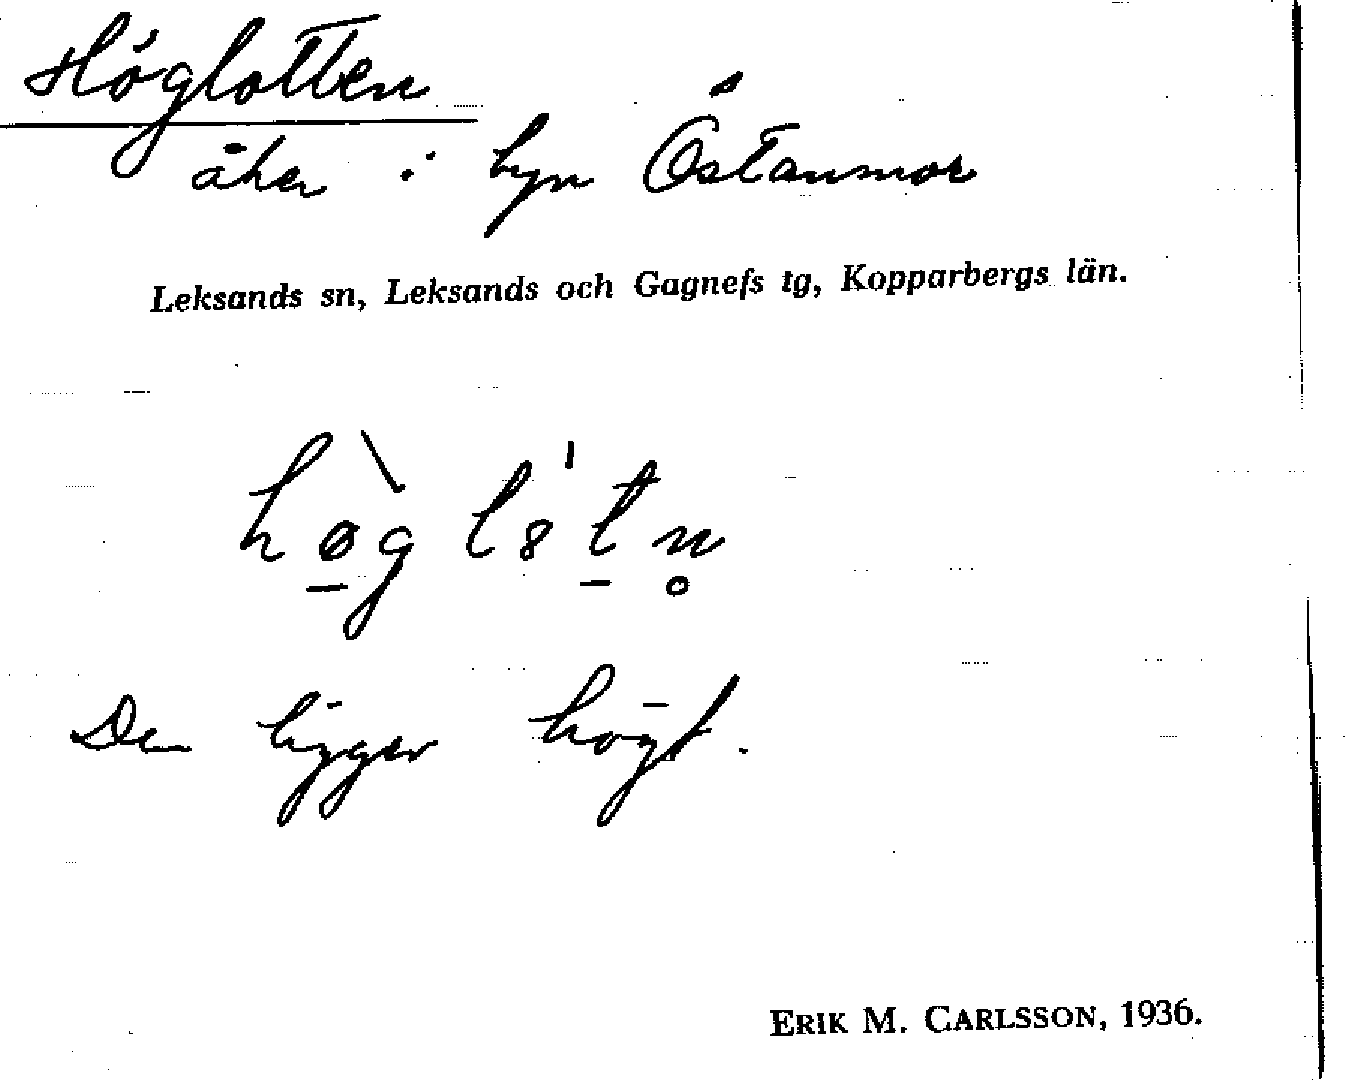 Höglotten
åker i byn Östanmor
Leksands sn, Leksands och Gagnefs tg, Kopparbergs län.
hø̲̀g l8t̲n̥
Den ligger högt.
ERIK M. CARLSSON, 1936.